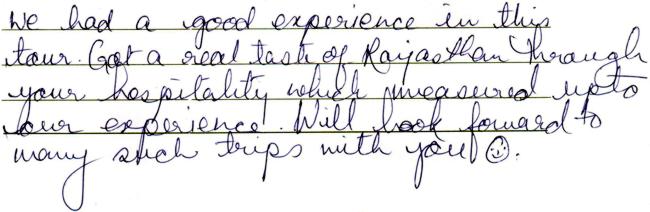 We had a good experience in this
tour. Got a real taste of Rajasthan through
your hospitality which measured upto
our experience. Will look forward to
many such trips with you! ☺.